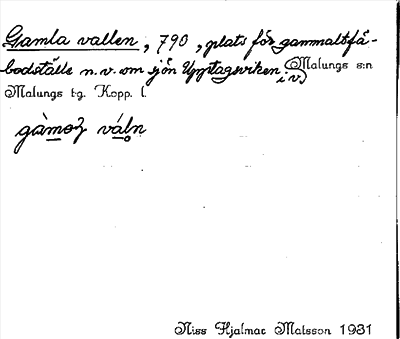 Gamla vallen, 790, plats för gammalt fä-
bodställe n.v. om sjön Upptagsviken i V Malungs s:n
Malungs tg. Kopp. l.
gàmoɫ váln
Niss Hjalmar Matsson 1931